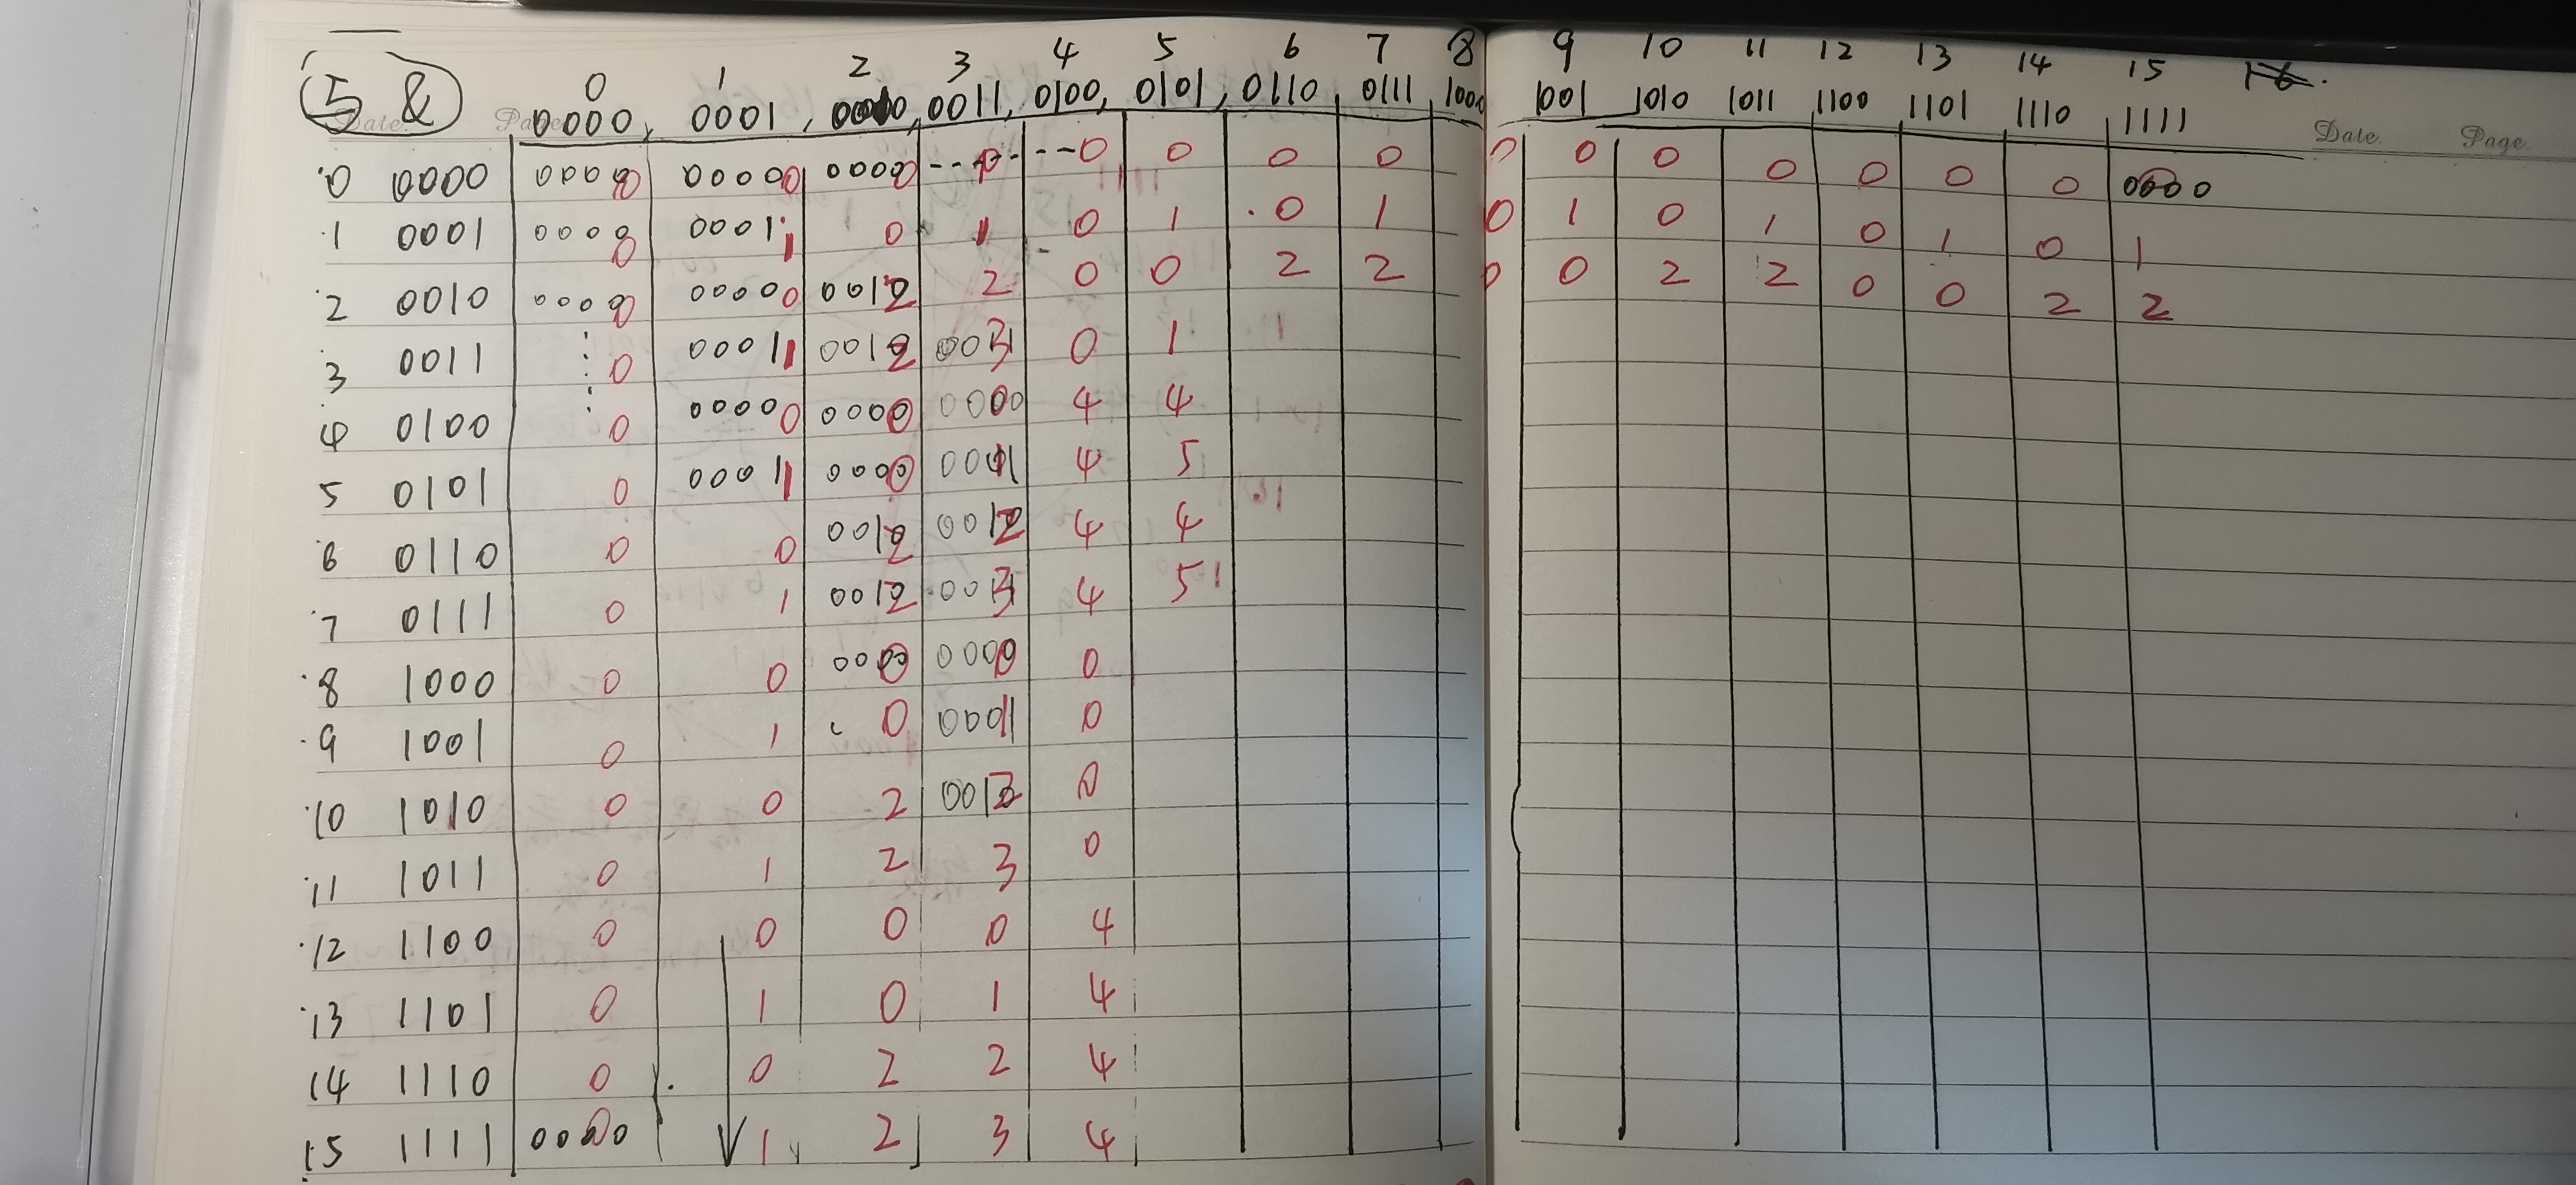 0 1 2 3 4 5 6 7 8 9 10 11 12 13 14 15
5 & 0000, 0001, 0010, 0011, 0100, 0101, 0110, 0111, 1000 1001 1010 1011 1100 1101 1110 1111
Date. Page. Date. Page.
0 0000 0000 0 0000 0 0000 0 0 0 0 0 0 0 0 0 0 0 0 0 0000
1 0001 0000 0 0001 1 0 1 0 1 0 1 0 1 0 1 0 1 0 1
2 0010 0000 0 0000 0 0010 2 2 0 0 2 2 0 0 2 2 0 0 2 2
3 0011 0 0001 1 0010 2 0011 3 0 1
4 0100 0 0000 0 0000 0 0000 0 4 4
5 0101 0 0001 1 0000 0 0001 1 4 5
6 0110 0 0 0010 2 0010 2 4 4
7 0111 0 1 0010 2 0011 3 4 5
8 1000 0 0 0000 0 0000 0 0
9 1001 0 1 0 0001 1 0
10 1010 0 0 2 0010 2 0
11 1011 0 1 2 3 0
12 1100 0 0 0 0 4
13 1101 0 1 0 1 4
14 1110 0 0 2 2 4
15 1111 0000 1 2 3 4